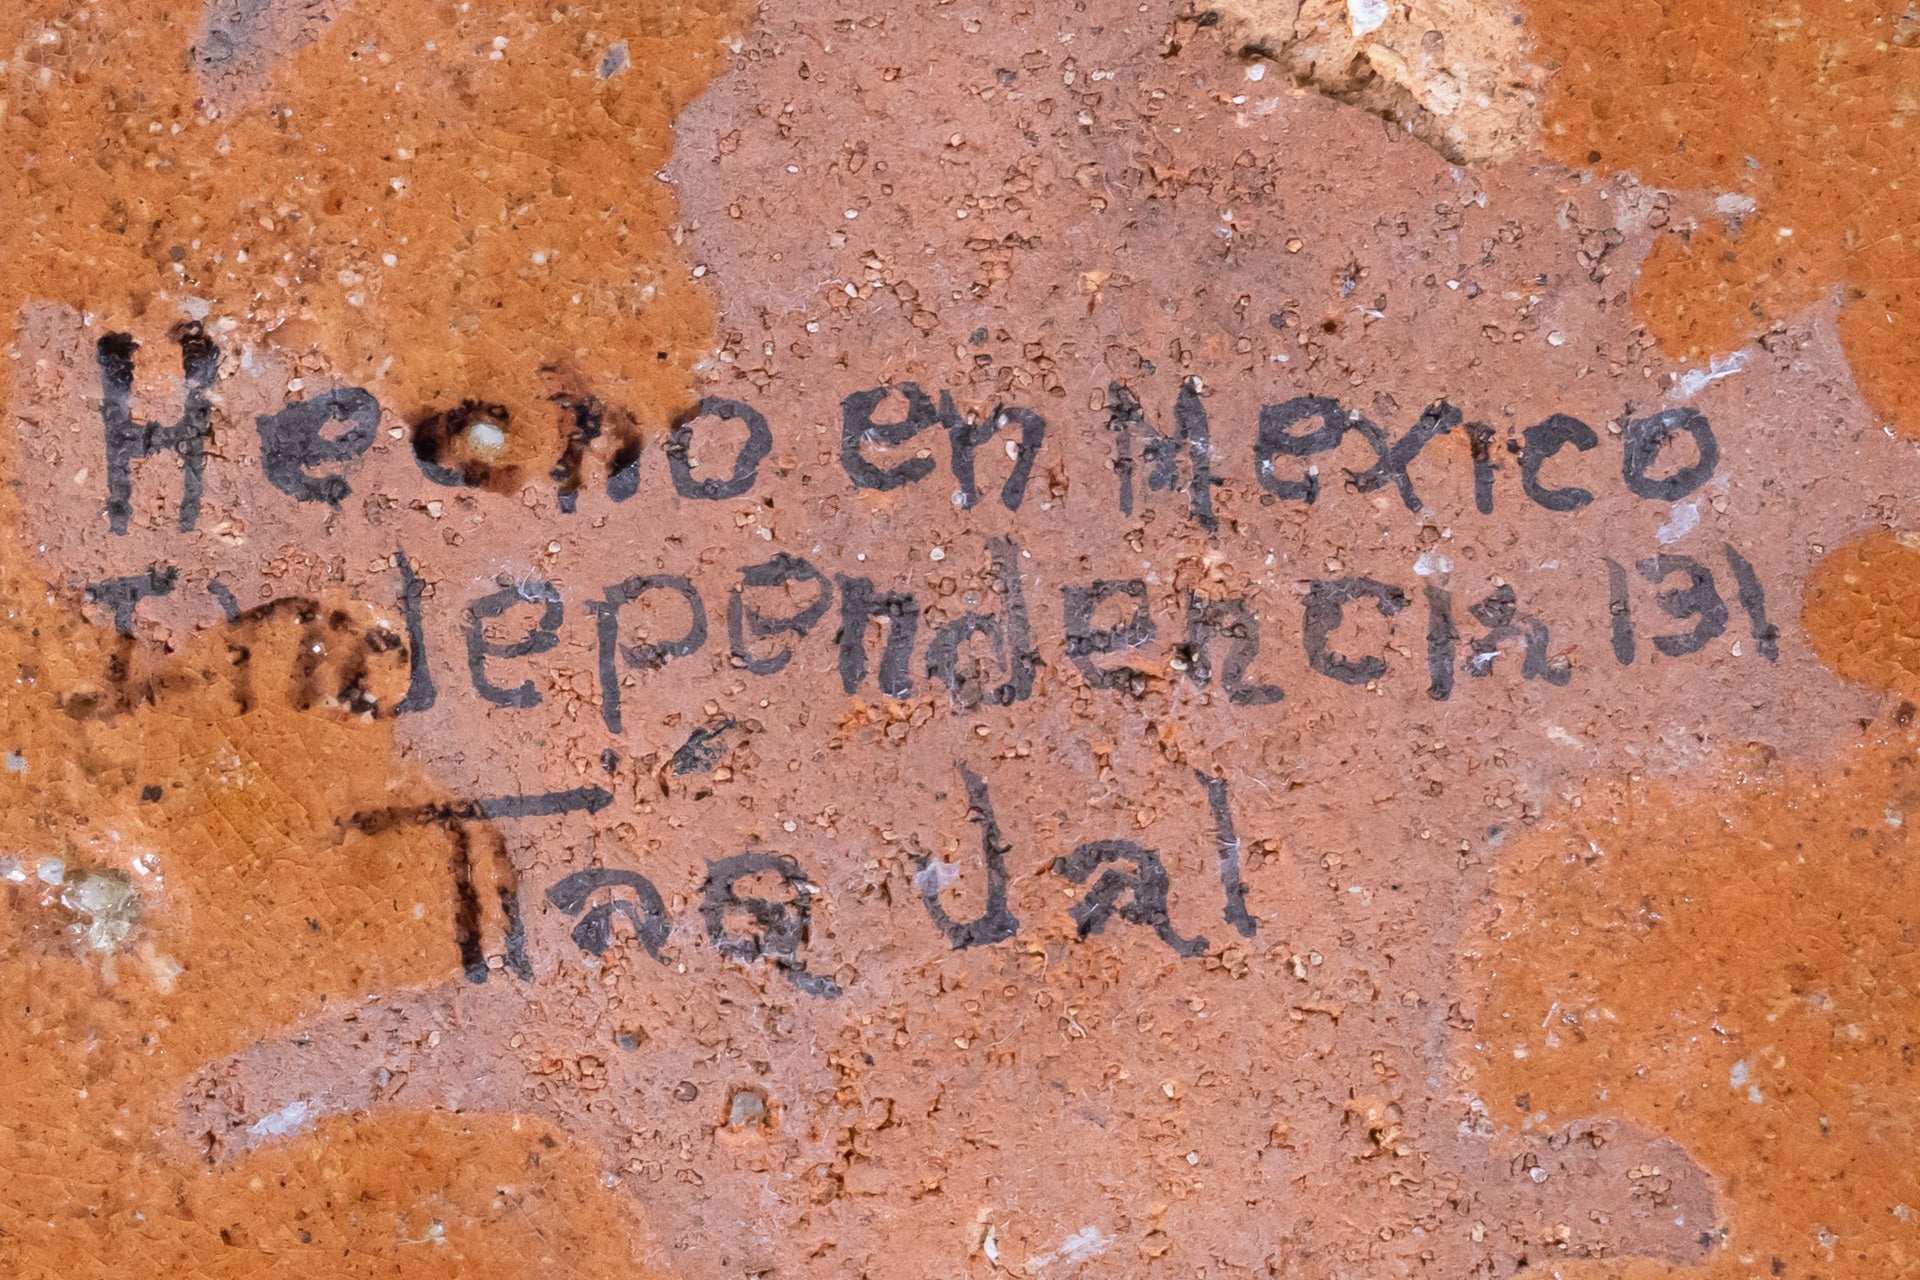 Hecho en Mexico
Independencia 131
Tlaq Jal